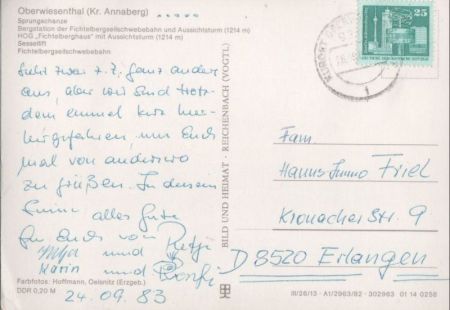 Oberwiesenthal (Kr. Annaberg)
Sprungschanze
Bergstation der Fichtelbergseilschwebebahn und Aussichtsturm (1214 m)
HOG „Fichtelberghaus" mit Aussichtsturm (1214 m)
Sessellift
Fichtelbergseilschwebebahn
Sieht zwar z.Z. ganz anders
aus, aber wir sind trotz-
dem einmal kurz hier-
hergefahren, um Euch
mal von anderswo
zu grüßen. In diesem
Sinne alles Gute
für Euch von
und
Karin und
24.09.83
Farbfotos: Hoffmann, Oelsnitz (Erzgeb.)
DDR 0,20 M
BILD UND HEIMAT · REICHENBACH (VOGTL)
25
Fam.
Hanns Friel
Kronacher Str. 9
D 8520 Erlangen
III/26/13 · A1/2963/82 · 302963 01 14 0256